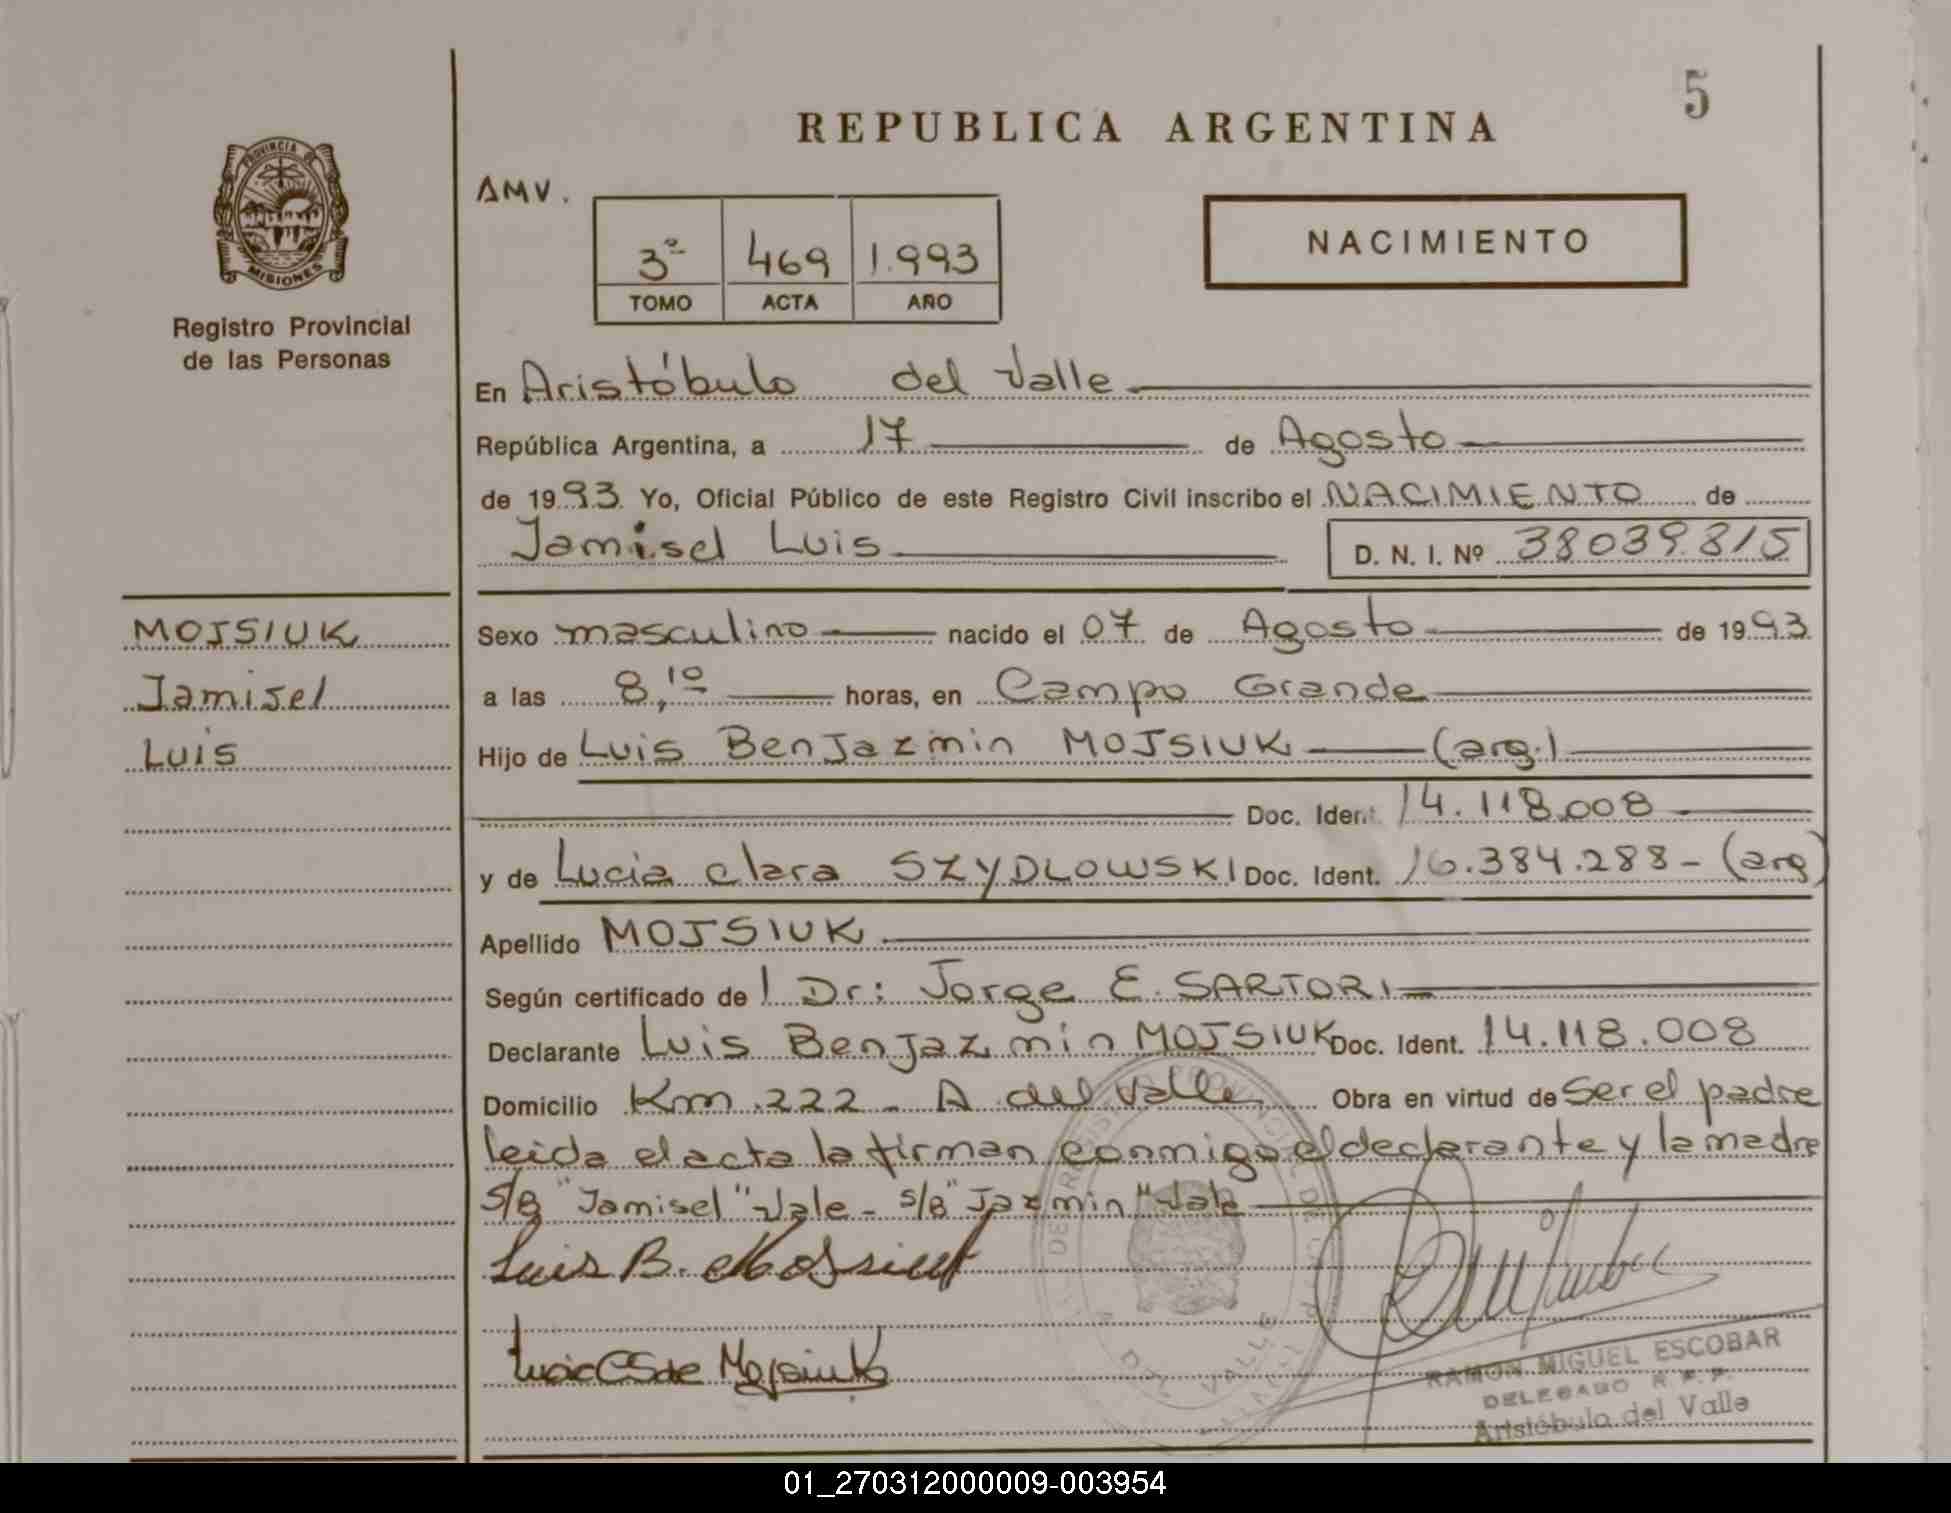 5
REPUBLICA ARGENTINA
PROVINCIA DE
MISIONES
Registro Provincial
de las Personas
AMV.
3º 469 1.993
TOMO ACTA AÑO
NACIMIENTO
En Aristóbulo del Valle
República Argentina, a 17 de Agosto
de 1993 Yo, Oficial Público de este Registro Civil inscribo el NACIMIENTO de
Jamisel Luis D. N. I. Nº 38039815
MOJSIUK
Jamisel
Luis
Sexo masculino nacido el 07 de Agosto de 1993
a las 8,10 horas, en Campo Grande
Hijo de Luis Benjazmin MOJSIUK (arg.)
Doc. Ident. 14.118.008
y de Lucia Clara SZYDLOWSKI Doc. Ident. 16.384.288- (arg)
Apellido MOJSIUK
Según certificado de l Dr: Jorge E. SARTORI
Declarante Luis Benjazmin MOJSIUK Doc. Ident. 14.118.008
Domicilio Km 222 - A del Valle Obra en virtud de Ser el padre
leida el acta la firman conmigo el declarante y la madre
S/B "Jamisel" Vale - S/B "Jazmin" Vale
Luis B. Mojsiuk
Mojsiuk
RAMON MIGUEL ESCOBAR
DELEGADO R. P. P.
Aristóbulo del Valle
01_270312000009-003954